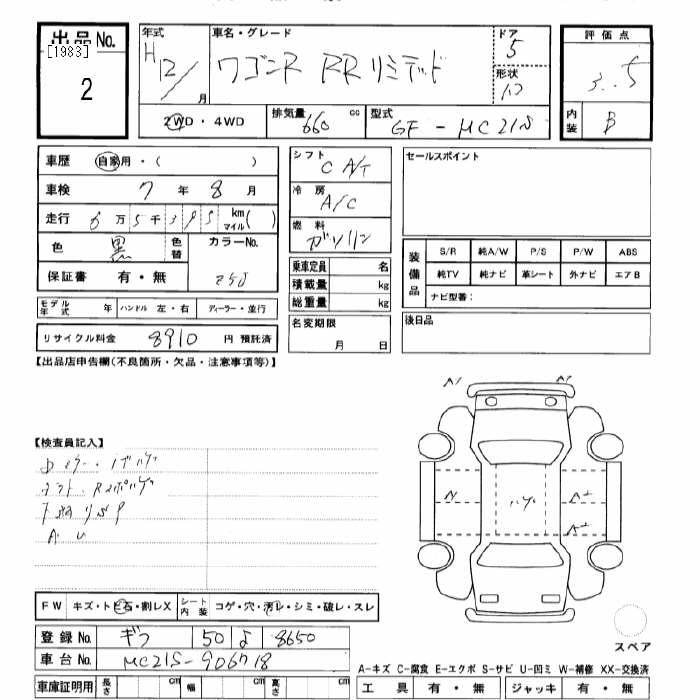 出品 No. [1983] 2
年式 H12/ 月
車名・グレード ワゴンR RRリミテッド
ドア 5
形状
2WD・4WD
排気量 660 cc
型式 GF-MC21S
評価点 3.5
内装 B
車歴 自家用・( )
車検 7 年 8 月
走行 6 万 5 千 3 9 5 km マイル( )
色 黒 色替
カラーNo.
保証書 有・無
モデル年式 年 ハンドル 左・右 ディーラー・並行
リサイクル料金 8910 円 預託済
シフト CA/T
冷房 A/C
燃料 ガソリン
乗車定員 名
積載量 kg
総重量 kg
名変期限 月 日
セールスポイント
装備品 S/R 純A/W P/S P/W ABS
純TV 純ナビ 革シート 外ナビ エアB
ナビ型番:
後日品
【出品店申告欄(不良箇所・欠品・注意事項等)】
A1 A1
【検査員記入】
ハゲ
A2
A2
FW キズ・トビ石・割レX シート内装 コゲ・穴・汚レ・シミ・破レ・スレ
登録 No. ギフ 50 よ 8650
車台 No. MC21S-906718
スペア
A-キズ C-腐食 E-エクボ S-サビ U-凹ミ W-補修 XX-交換済
車庫証明用 長さ cm 幅 cm 高さ cm
工具 有・無 ジャッキ 有・無